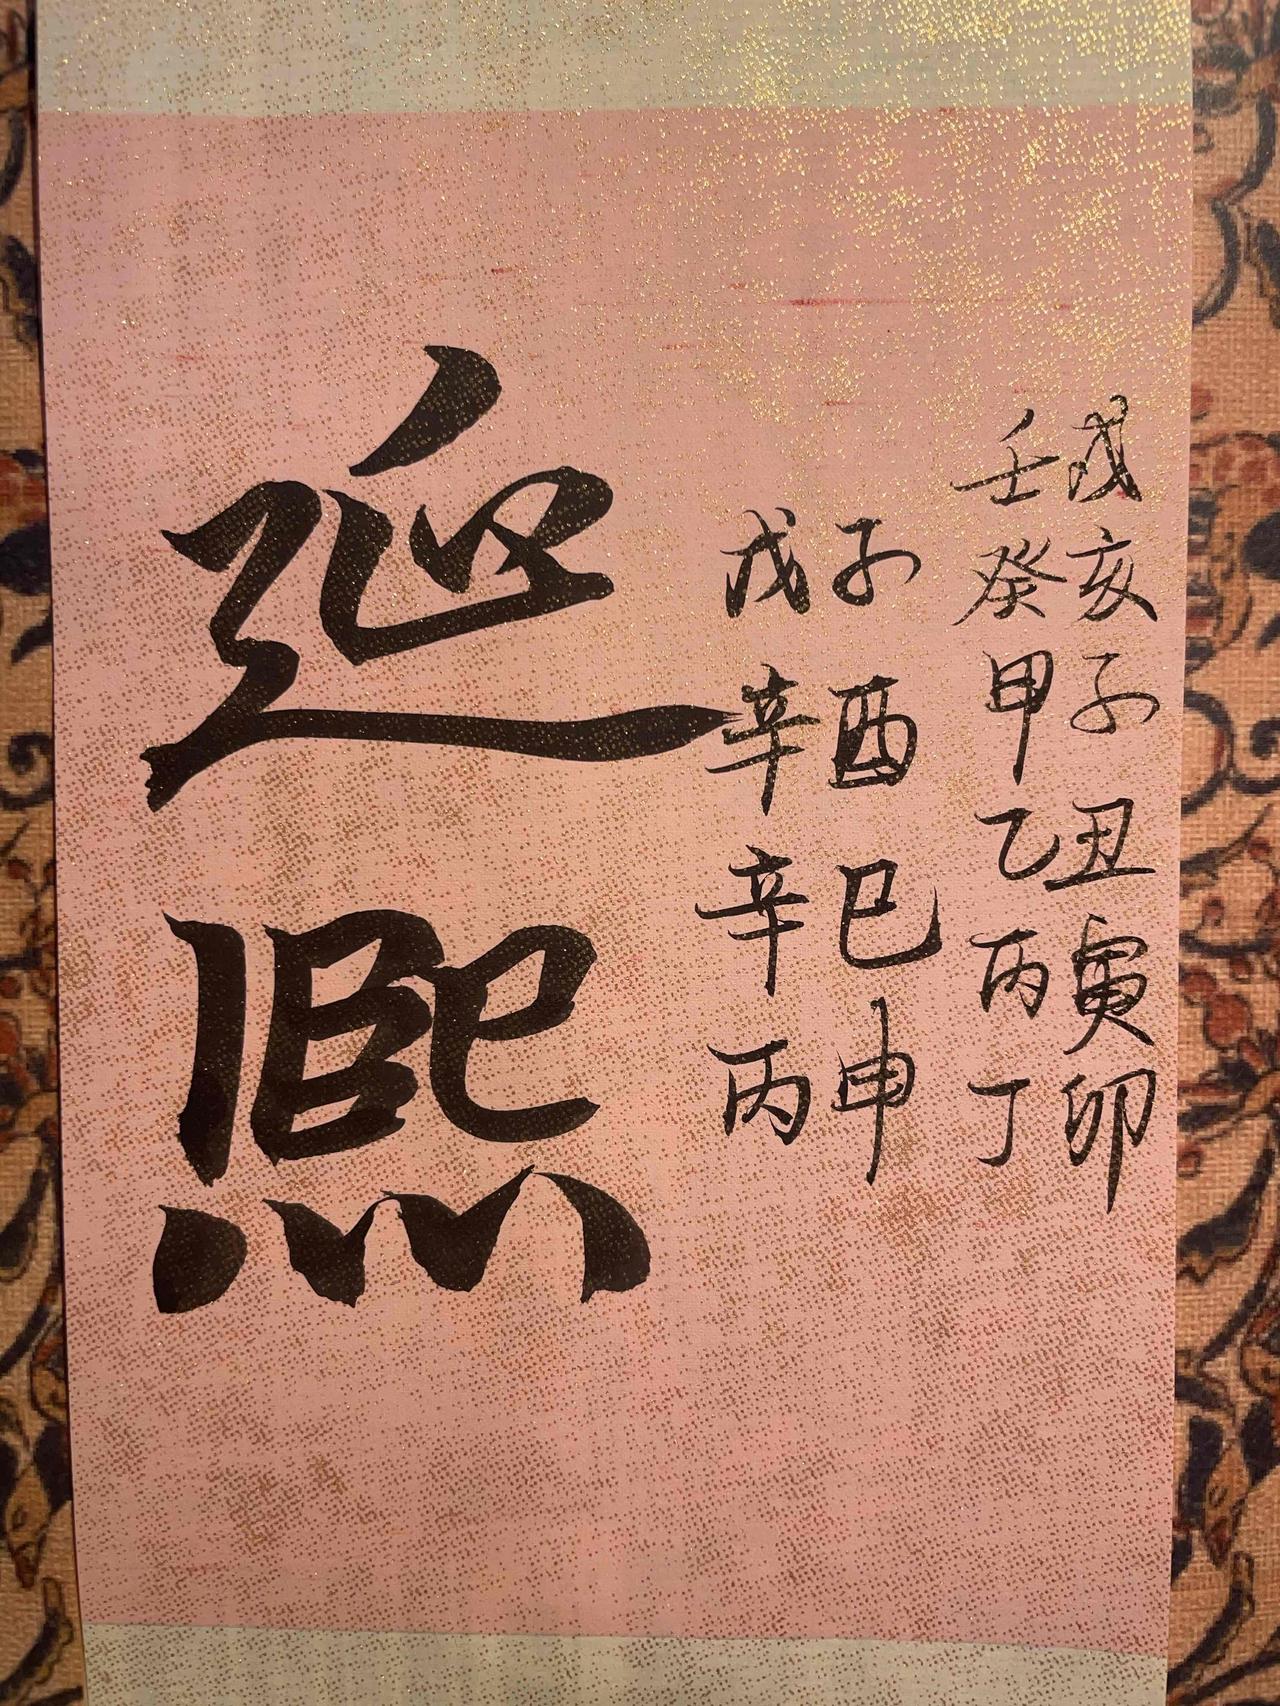 戌亥子丑寅卯
壬癸甲乙丙丁
子酉巳申
戊辛辛丙
延熙